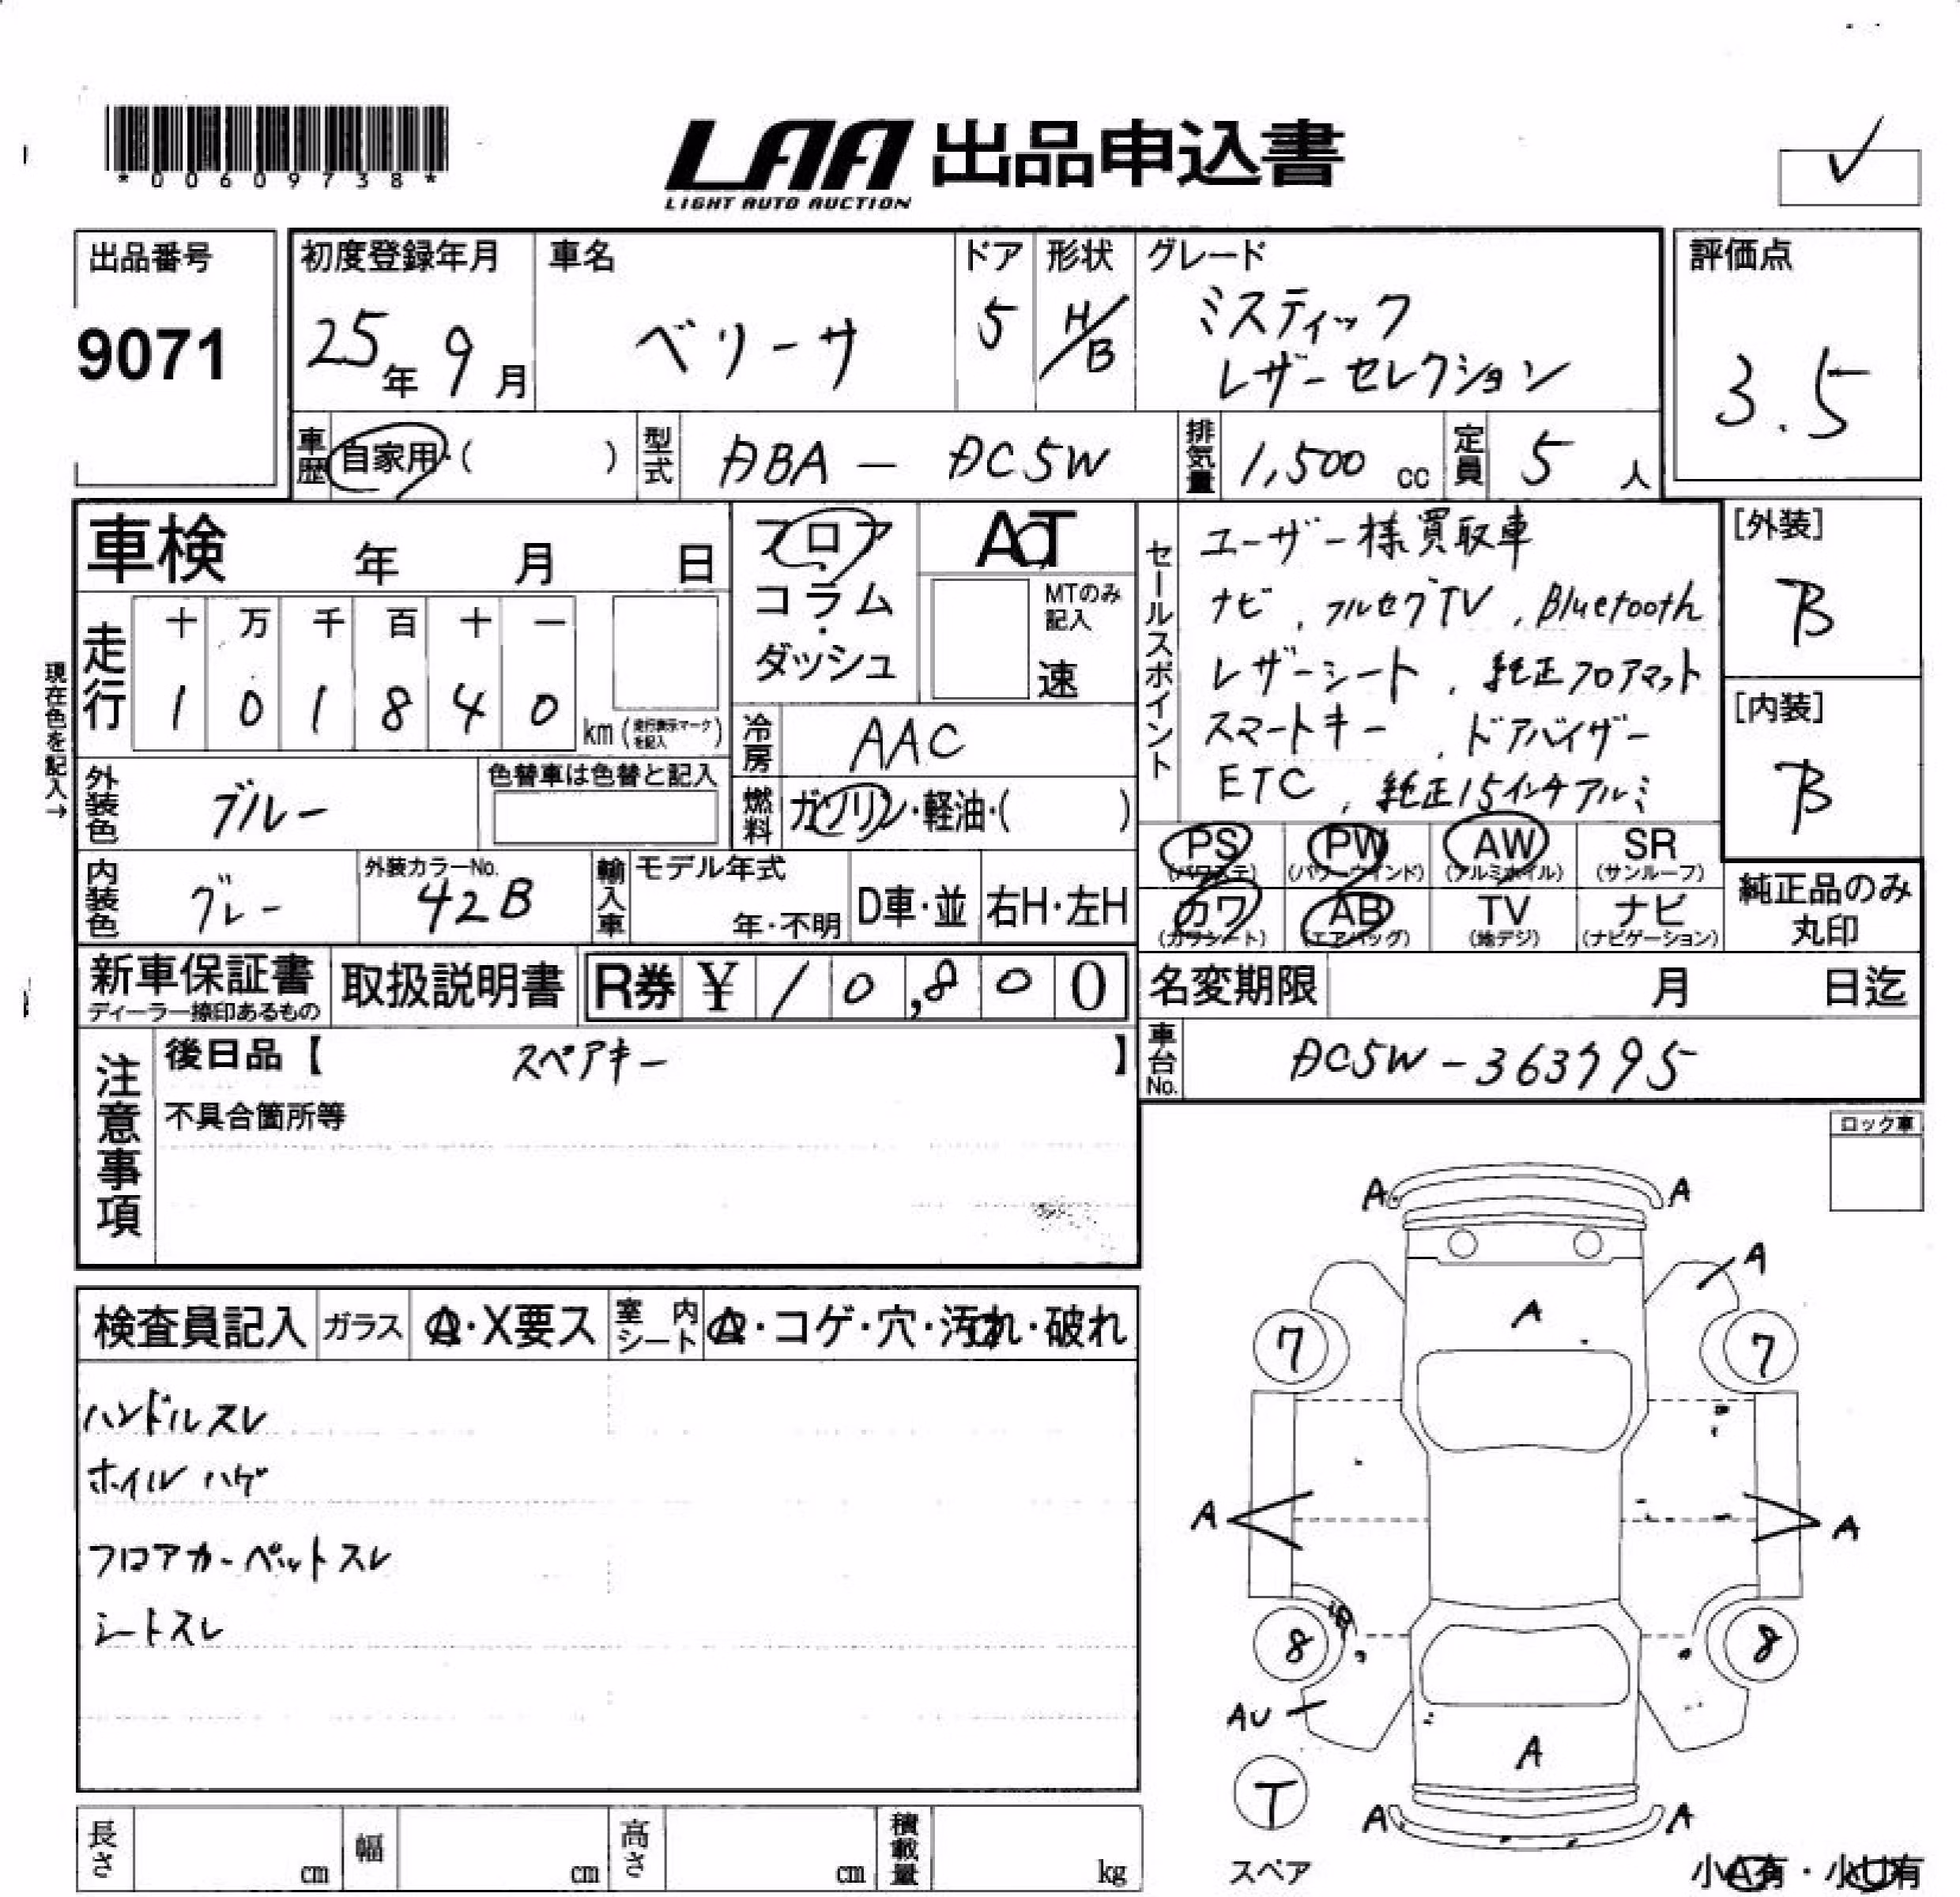 *00609738*
LAA 出品申込書
LIGHT AUTO AUCTION
出品番号
9071
初度登録年月
25年 9月
車名
ベリーサ
ドア
5
形状
H/B
グレード
ミスティック
レザーセレクション
評価点
3.5
車歴 自家用・( )
型式 DBA - DC5W
排気量 1,500 cc
定員 5 人
車検 年 月 日
フロア
・
コラム
・
ダッシュ
AT
MTのみ
記入
速
セールスポイント
ユーザー様買取車
ナビ、フルセグTV、Bluetooth
レザーシート、純正フロアマット
スマートキー、ドアバイザー
ETC、純正15インチアルミ
[外装]
B
[内装]
B
現在色を記入→
走行
十 万 千 百 十 一
1 0 1 8 4 0
km(走行表示マークを記入)
冷房 AAC
燃料 ガソリン・軽油・( )
外装色 ブルー
色替車は色替と記入
内装色 グレー
外装カラーNo.
42B
輸入車
モデル年式
年・不明
D車・並
右H・左H
PS
(パワステ)
PW
(パワーウインド)
AW
(アルミホイル)
SR
(サンルーフ)
カワ
(カワシート)
AB
(エアバッグ)
TV
(地デジ)
ナビ
(ナビゲーション)
純正品のみ
丸印
新車保証書
ディーラー捺印あるもの
取扱説明書
R券 ¥ 10,800
名変期限 月 日迄
車台No. DC5W-363795
注意事項
後日品【 スペアキー 】
不具合箇所等
ロック車
検査員記入
ガラス
・X要ス
室内シート
・コゲ・穴・汚れ・破れ
ハンドルスレ
ホイルハゲ
フロアカーペットスレ
シートスレ
A A
A
A
7 7
A A
8 8
AU
A
T
スペア
A A
小A有・小U有
長さ cm
幅 cm
高さ cm
積載量 kg